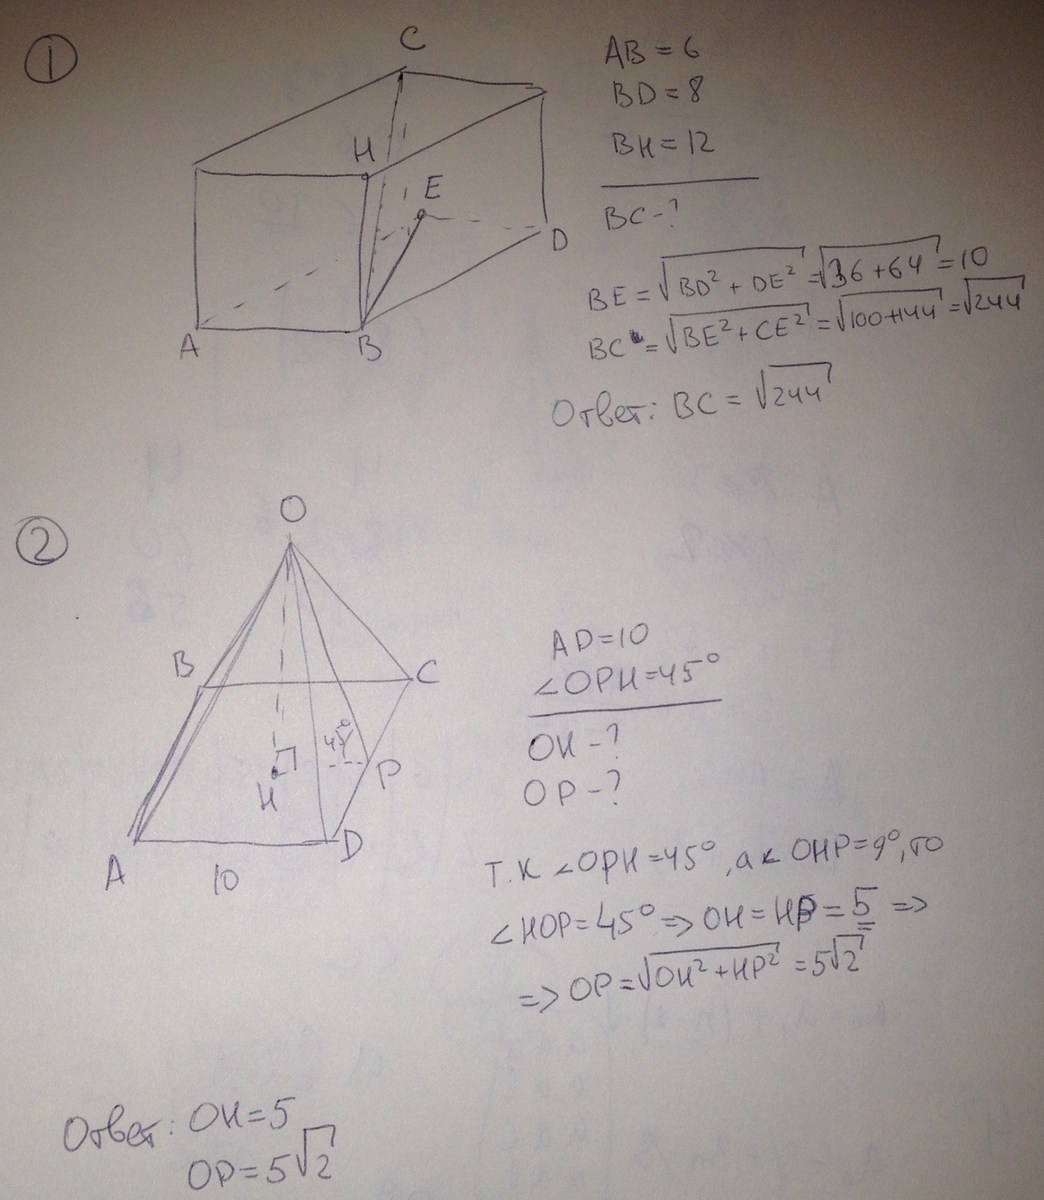 1
C
H
E
D
A
B
AB = 6
BD = 8
BH = 12
BC - ?
BE = √BD² + DE² = √36 + 64 = 10
BC = √BE² + CE² = √100+144 = √244
Ответ: BC = √244
2
O
B
C
45°
H
P
A
D
10
AD = 10
∠OPH = 45°
OH - ?
OP - ?
Т.К ∠OPH = 45°, а ∠ OHP = 9°, то
∠HOP = 45° => OH = HP = 5 =>
=> OP = √OH² + HP² = 5√2
Ответ: OH = 5
OP = 5√2